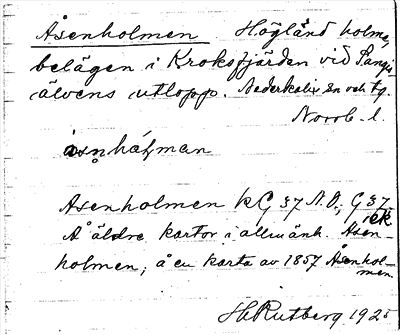 Åsenholmen Högländ holme,
belägen i Kroksfjärden vid Sangis
älvens utlopp. Nederkalix sn och tg.
Norrb. l.
åsṇhåɫman
Åsenholmen kG 37 N.O., G 37
ek
Å äldre kartor i allmänh. Åsen-
holmen; å en karta av 1857 Åsenhol-
men
H. Rutberg 1925